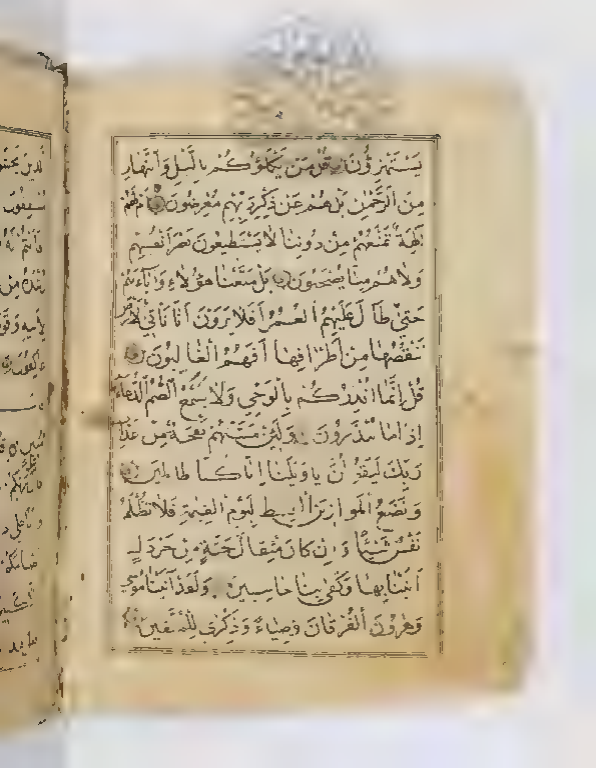 يَسْتَهْزِؤُنَ قُلْ مَنْ يَكْلَؤُكُمْ بِالَّيْلِ وَالنَّهَارِ
مِنَ الرَّحْمٰنِ بَلْ هُمْ عَنْ ذِكْرِ رَبِّهِمْ مُعْرِضُونَ اَمْ لَهُمْ
اٰلِهَةٌ تَمْنَعُهُمْ مِنْ دُونِنَا لَا يَسْتَطِيعُونَ نَصْرَ اَنْفُسِهِمْ
وَلَا هُمْ مِنَّا يُصْحَبُونَ بَلْ مَتَّعْنَا هٰؤُلَاءِ وَاٰبَاءَهُمْ
حَتّٰى طَالَ عَلَيْهِمُ الْعُمُرُ اَفَلَا يَرَوْنَ اَنَّا نَاْتِي الْاَرْضَ
نَنْقُصُهَا مِنْ اَطْرَافِهَا اَفَهُمُ الْغَالِبُونَ
قُلْ اِنَّمَا اُنْذِرُكُمْ بِالْوَحْيِ وَلَا يَسْمَعُ الصُّمُّ الدُّعَاءَ
اِذَا مَا يُنْذَرُونَ وَلَئِنْ مَسَّتْهُمْ نَفْحَةٌ مِنْ عَذَابِ
رَبِّكَ لَيَقُولُنَّ يَا وَيْلَنَا اِنَّا كُنَّا ظَالِمِينَ
وَنَضَعُ الْمَوَازِينَ الْقِسْطَ لِيَوْمِ الْقِيٰمَةِ فَلَا تُظْلَمُ
نَفْسٌ شَيْئًا وَاِنْ كَانَ مِثْقَالَ حَبَّةٍ مِنْ خَرْدَلٍ
اَتَيْنَا بِهَا وَكَفٰى بِنَا حَاسِبِينَ وَلَقَدْ اٰتَيْنَا مُوسٰى
وَهٰرُونَ الْفُرْقَانَ وَضِيَاءً وَذِكْرًى لِلْمُتَّقِينَ